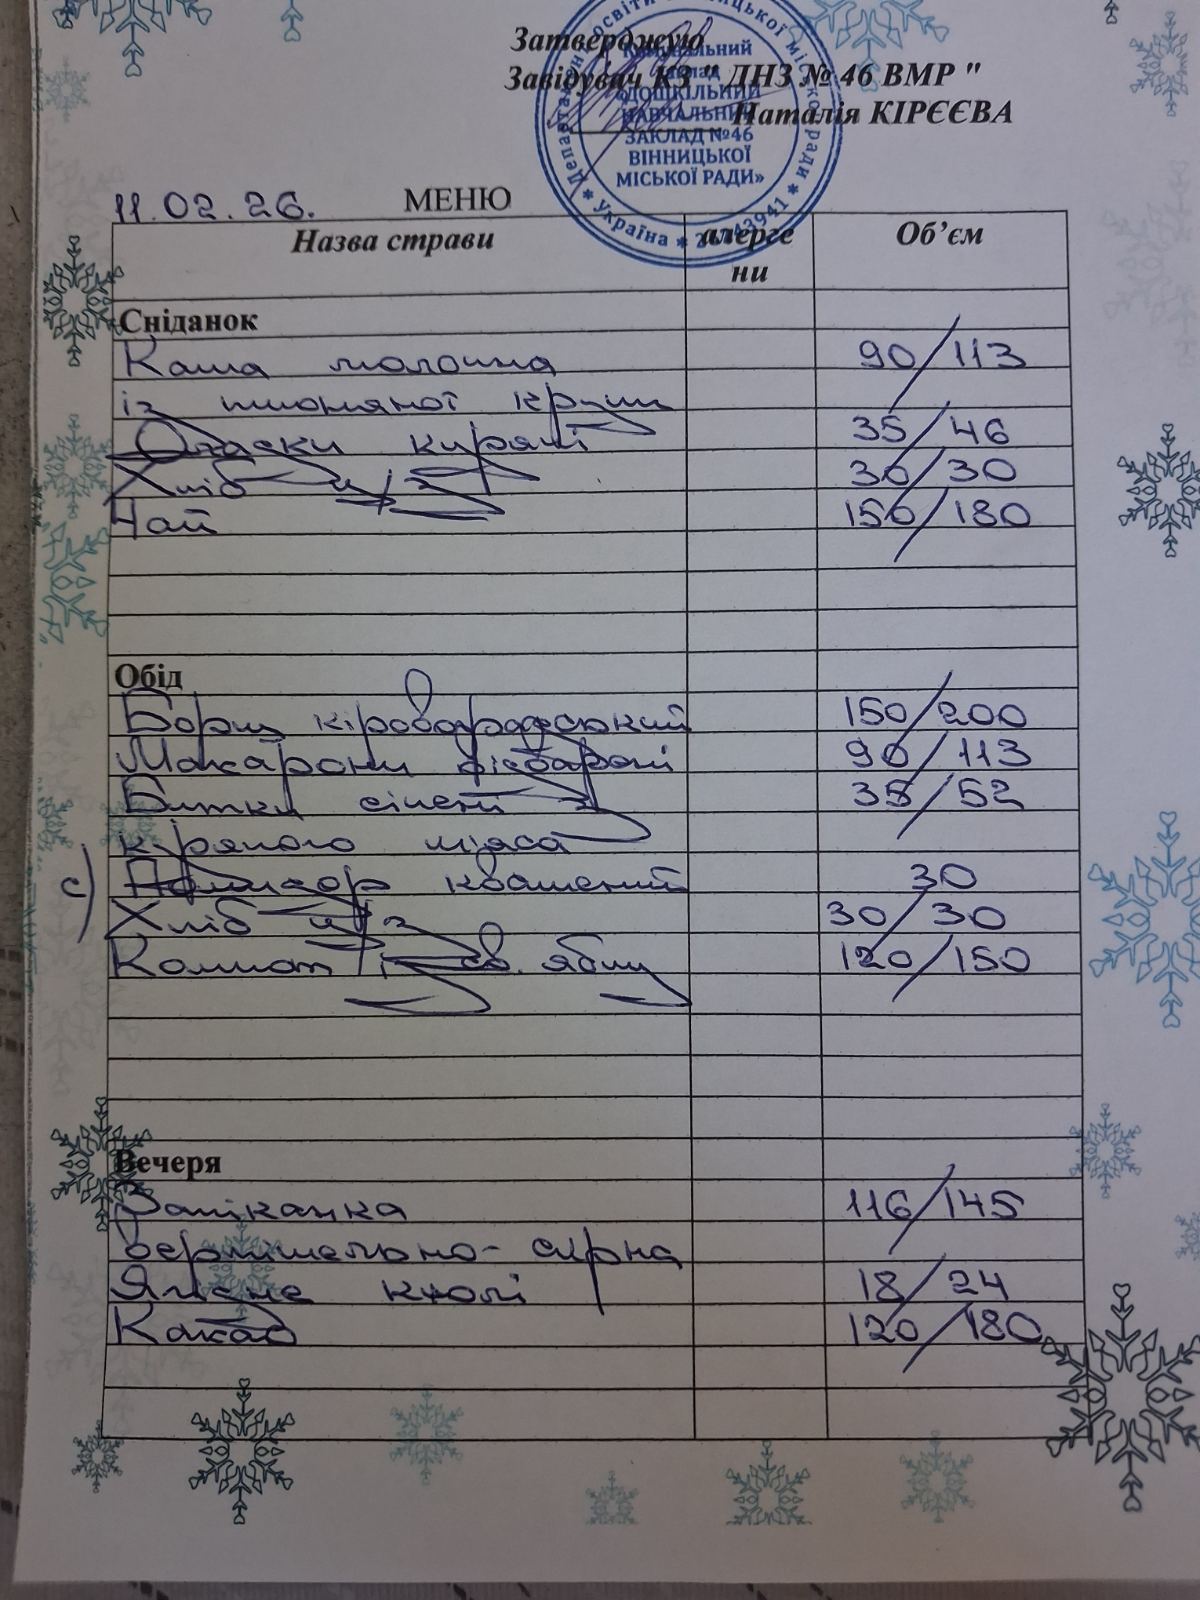 Затверджую
Завідувач КЗ " ДНЗ № 46 ВМР "
Наталія КІРЄЄВА
Комунальний
заклад
«ДОШКІЛЬНИЙ
НАВЧАЛЬНИЙ
ЗАКЛАД №46
ВІННИЦЬКОЇ
МІСЬКОЇ РАДИ»
Україна
11.02.26. МЕНЮ
Назва страви алерге Об’єм
ни
Сніданок
Каша молочна 90/113
із пшоняної крупи
курячі 35/46
Хліб ц/з 30/30
Чай 150/180
Обід
Борщ кіровоградський 150/200
Макарони відварені 90/113
Битки січені з 35/52
курячого м'яса
с) Помідор квашений 30
Хліб ц/з 30/30
Компот із св. яблук 120/150
Вечеря
Запіканка 116/145
вермішельно-сирна
Ягідне кюлі 18/24
Какао 120/180